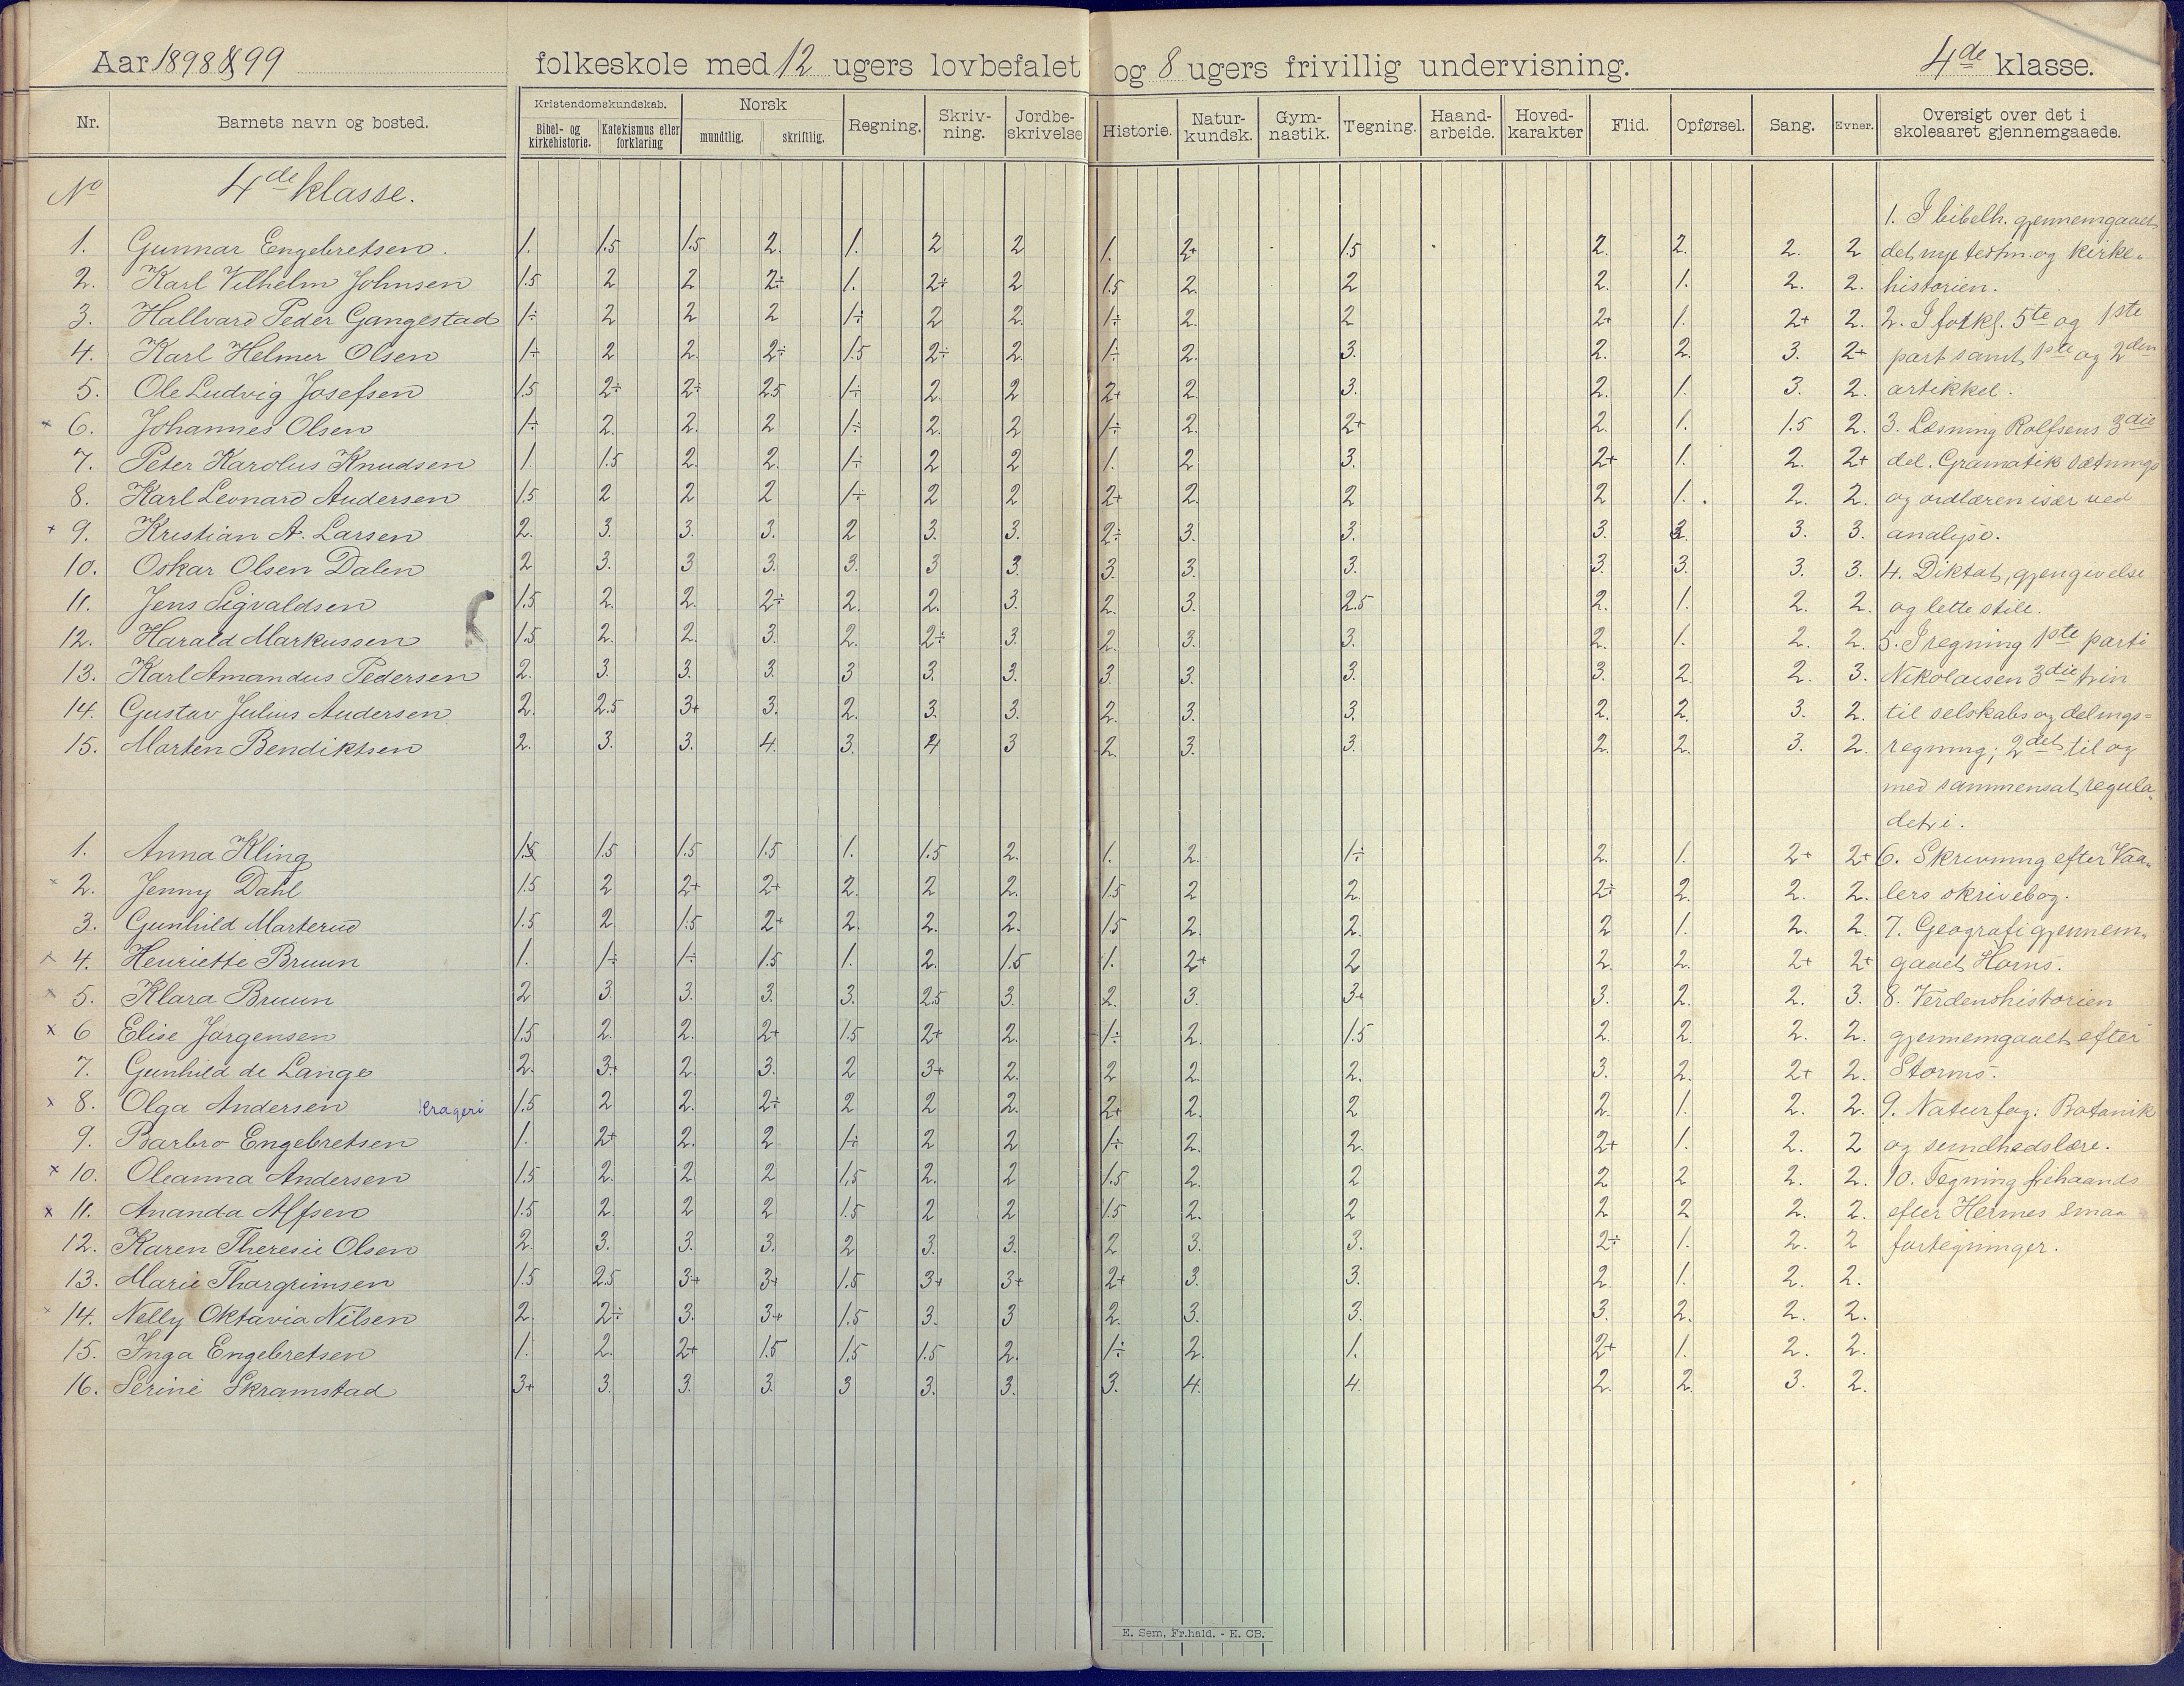 Aar 1898 & 99 folkeskole med 12 ugers lovbefalet og 8 ugers frivillig undervisning. 4de klasse.
Nr. Barnets navn og bosted. Kristendomskundskab. Bibel- og kirkehistorie. Katekismus eller forklaring Norsk mundtlig. skriftlig. Regning. Skriv-ning. Jordbe-skrivelse Historie. Natur-kundsk. Gym-nastik. Tegning. Haand-arbeide. Hoved-karakter Flid. Opførsel. Sang. Evner. Oversigt over det i skoleaaret gjennemgaaede.
No 4de klasse.
1. I bibelh. gjennemgaaet
1. Gunnar Engebretsen. 1. 1.5 1.5 2. 1. 2 2 1. 2+ 1.5 2. 2. 2. 2 det nye testm. og kirke-
2. Karl Vilhelm Johnsen 1.5 2 2 2÷ 1. 2÷ 2 1.5 2. 2 2. 1. 2. 2. historien.
3. Hallvard Peder Gangestad 1÷ 2 2 2 1÷ 2 2. 1÷ 2. 2 2+ 1. 2+ 2. 2. I forkl. 5te og 1ste
4. Karl Helmer Olsen 1÷ 2 2. 2÷ 1.5 2÷ 2. 1÷ 2. 3. 2. 2. 3. 2+ part samt 1ste og 2den
5. Ole Ludvig Josefsen 1.5 2÷ 2÷ 2.5 1÷ 2. 2 2+ 2. 3. 2. 1. 3. 2. artikkel.
6. Johannes Olsen 1÷ 2. 2. 2 1÷ 2. 2 1÷ 2. 2+ 2. 1. 1.5 2. 3. Læsning Rolfsens 3die
7. Peter Karolus Knudsen 1. 1.5 2. 2. 1÷ 2 2 1. 2 3. 2+ 1. 2. 2+ del. Gramatik sætnings
8. Karl Leonard Andersen 1.5 2 2 2 1÷ 2 2 2+ 2. 2 2 1. 2. 2. og ordlæren især ved
9. Kristian A. Larsen 2. 3. 3. 3. 2 3. 3. 2÷ 3. 3. 3. 3. 3. analyse.
10. Oskar Olsen Dalen 2 3. 3 3. 3. 3 3. 3. 3. 3. 3. 3. 3. 3. 4. Diktat, gjengivelse
11. Jens Sigvaldsen 1.5 2. 2. 2÷ 2. 2. 3. 2. 3. 2.5 2. 1. 2. 2. og lette stile.
12. Harald Markussen 1.5 2. 2. 3. 2. 2÷ 3. 2. 3. 3. 2. 1. 2. 2. 5. I regning 1ste parti
13. Karl Amandus Pedersen 2. 3. 3. 3. 3 3. 3. 3. 3. 3. 3. 2. 2. 3. Nikolaisen 3die trin
14. Gustav Julius Andersen 2. 2.5 3+ 3. 2. 3. 3. 2. 3. 3. 2. 2. 3. 2. til selskabs og delings=
15. Marten Bendiktsen 2. 3. 3. 4. 3. 4 3 2. 3. 3. 2. 2. 3. 2. regning; 2det til og
med sammensat regula
detri.
1. Anna Kling 1.5 1.5 1.5 1.5 1. 1.5 2. 1. 2. 1÷ 2. 1. 2+ 2+ 6. Skrivning efter Vaa-
2. Jenny Dahl 1.5 2 2+ 2+ 2. 2 2. 1.5 2 2. 2÷ 2. 2. 2. lers skrivebog.
3. Gunhild Marterud 1.5 2 1.5 2+ 2. 2. 2. 1.5 2. 2. 2 1. 2. 2. 7. Geografi gjennem-
4. Henriette Bruun 1. 1÷ 1÷ 1.5 1. 2. 1.5 1. 2+ 2 2. 2. 2+ 2+ gaaet Horns.
5. Klara Bruun 2 3 3. 3. 3. 2.5 3. 2. 3. 3+ 3. 2. 2. 3. 8. Verdenshistorien
x 6 Elise Jørgensen 1.5 2. 2. 2+ 1.5 2+ 2. 1÷ 2. 1.5 2. 2. 2. 2. gjennemgaaet efter
7. Gunhild de Lange 2. 3+ 2. 3. 2 3+ 2. 2 2. 2. 3. 2. 2+ 2. Storms.
x 8. Olga Andersen Kragerø 1.5 2 2. 2÷ 2 2 2. 2+ 2. 2 2. 1. 2. 2. 9. Naturfag: Botanik
9. Barbro Engebretsen 1. 2+ 2. 2 1÷ 2 2 1÷ 2. 2. 2+ 1. 2. 2 og sundhedslære.
x 10. Oleanna Andersen 1.5 2. 2 2 1.5 2. 2 1.5 2. 2 2 2 2. 2. 10. Tegning frihaands
x 11. Ananda Alfsen 1.5 2. 2 2 1.5 2 2 1.5 2. 2 2 2 2. 2. efter Hermes smaa
12. Karen Theresie Olsen 2. 3. 3. 3. 2 3. 3. 2 3. 3. 2÷ 1. 2. 2 fortegninger.
13. Marie Thorgrimsen 1.5 2.5 3+ 3+ 1.5 3+ 3+ 2+ 3. 3. 2. 1. 2. 2.
14. Nelly Oktavia Nilsen 2. 2÷ 3. 3+ 1.5 3. 3 2. 3. 3. 3. 2. 2. 2.
15. Inga Engebretsen 1. 2. 2+ 1.5 1.5 1.5 2. 1÷ 2. 1. 2+ 1. 2. 2.
16. Serine Skramstad 3+ 3. 3. 3. 3 3. 3. 3. 4. 4. 2. 2. 3. 2.
E. Sem, Fr.hald. - E. CB.